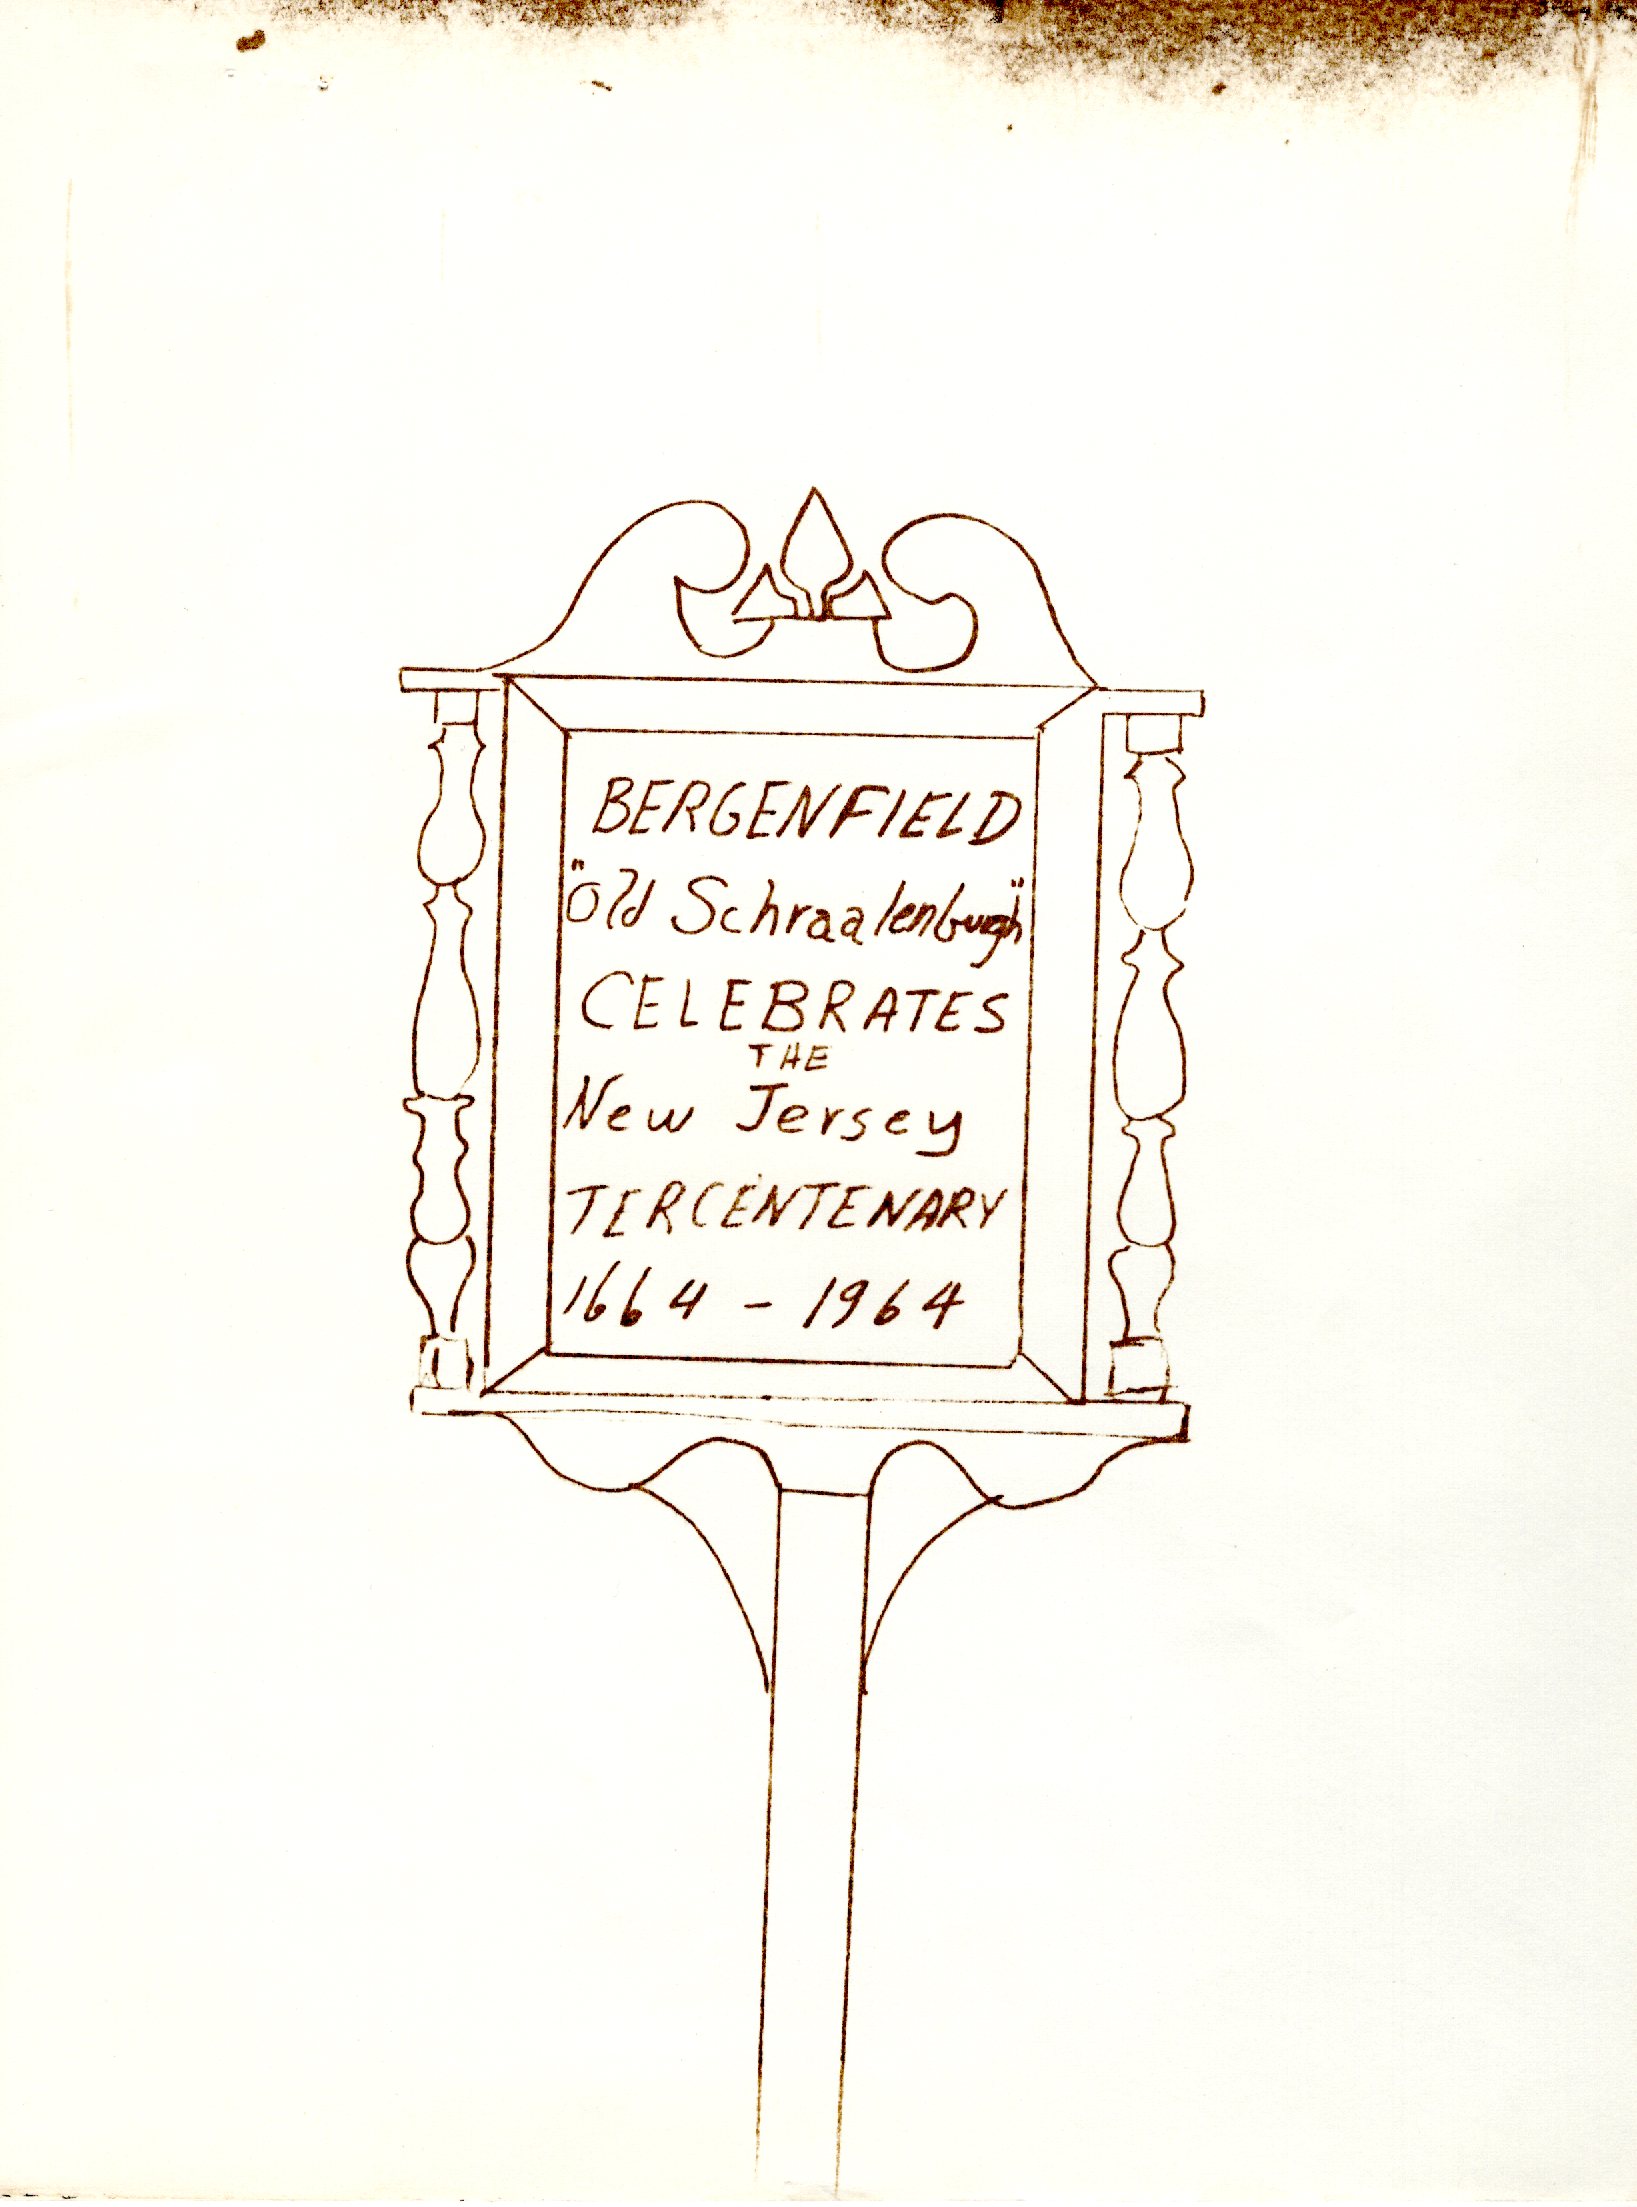 BERGENFIELD
"Old Schraalenburgh"
CELEBRATES
THE
New Jersey
TERCENTENARY
1664 - 1964